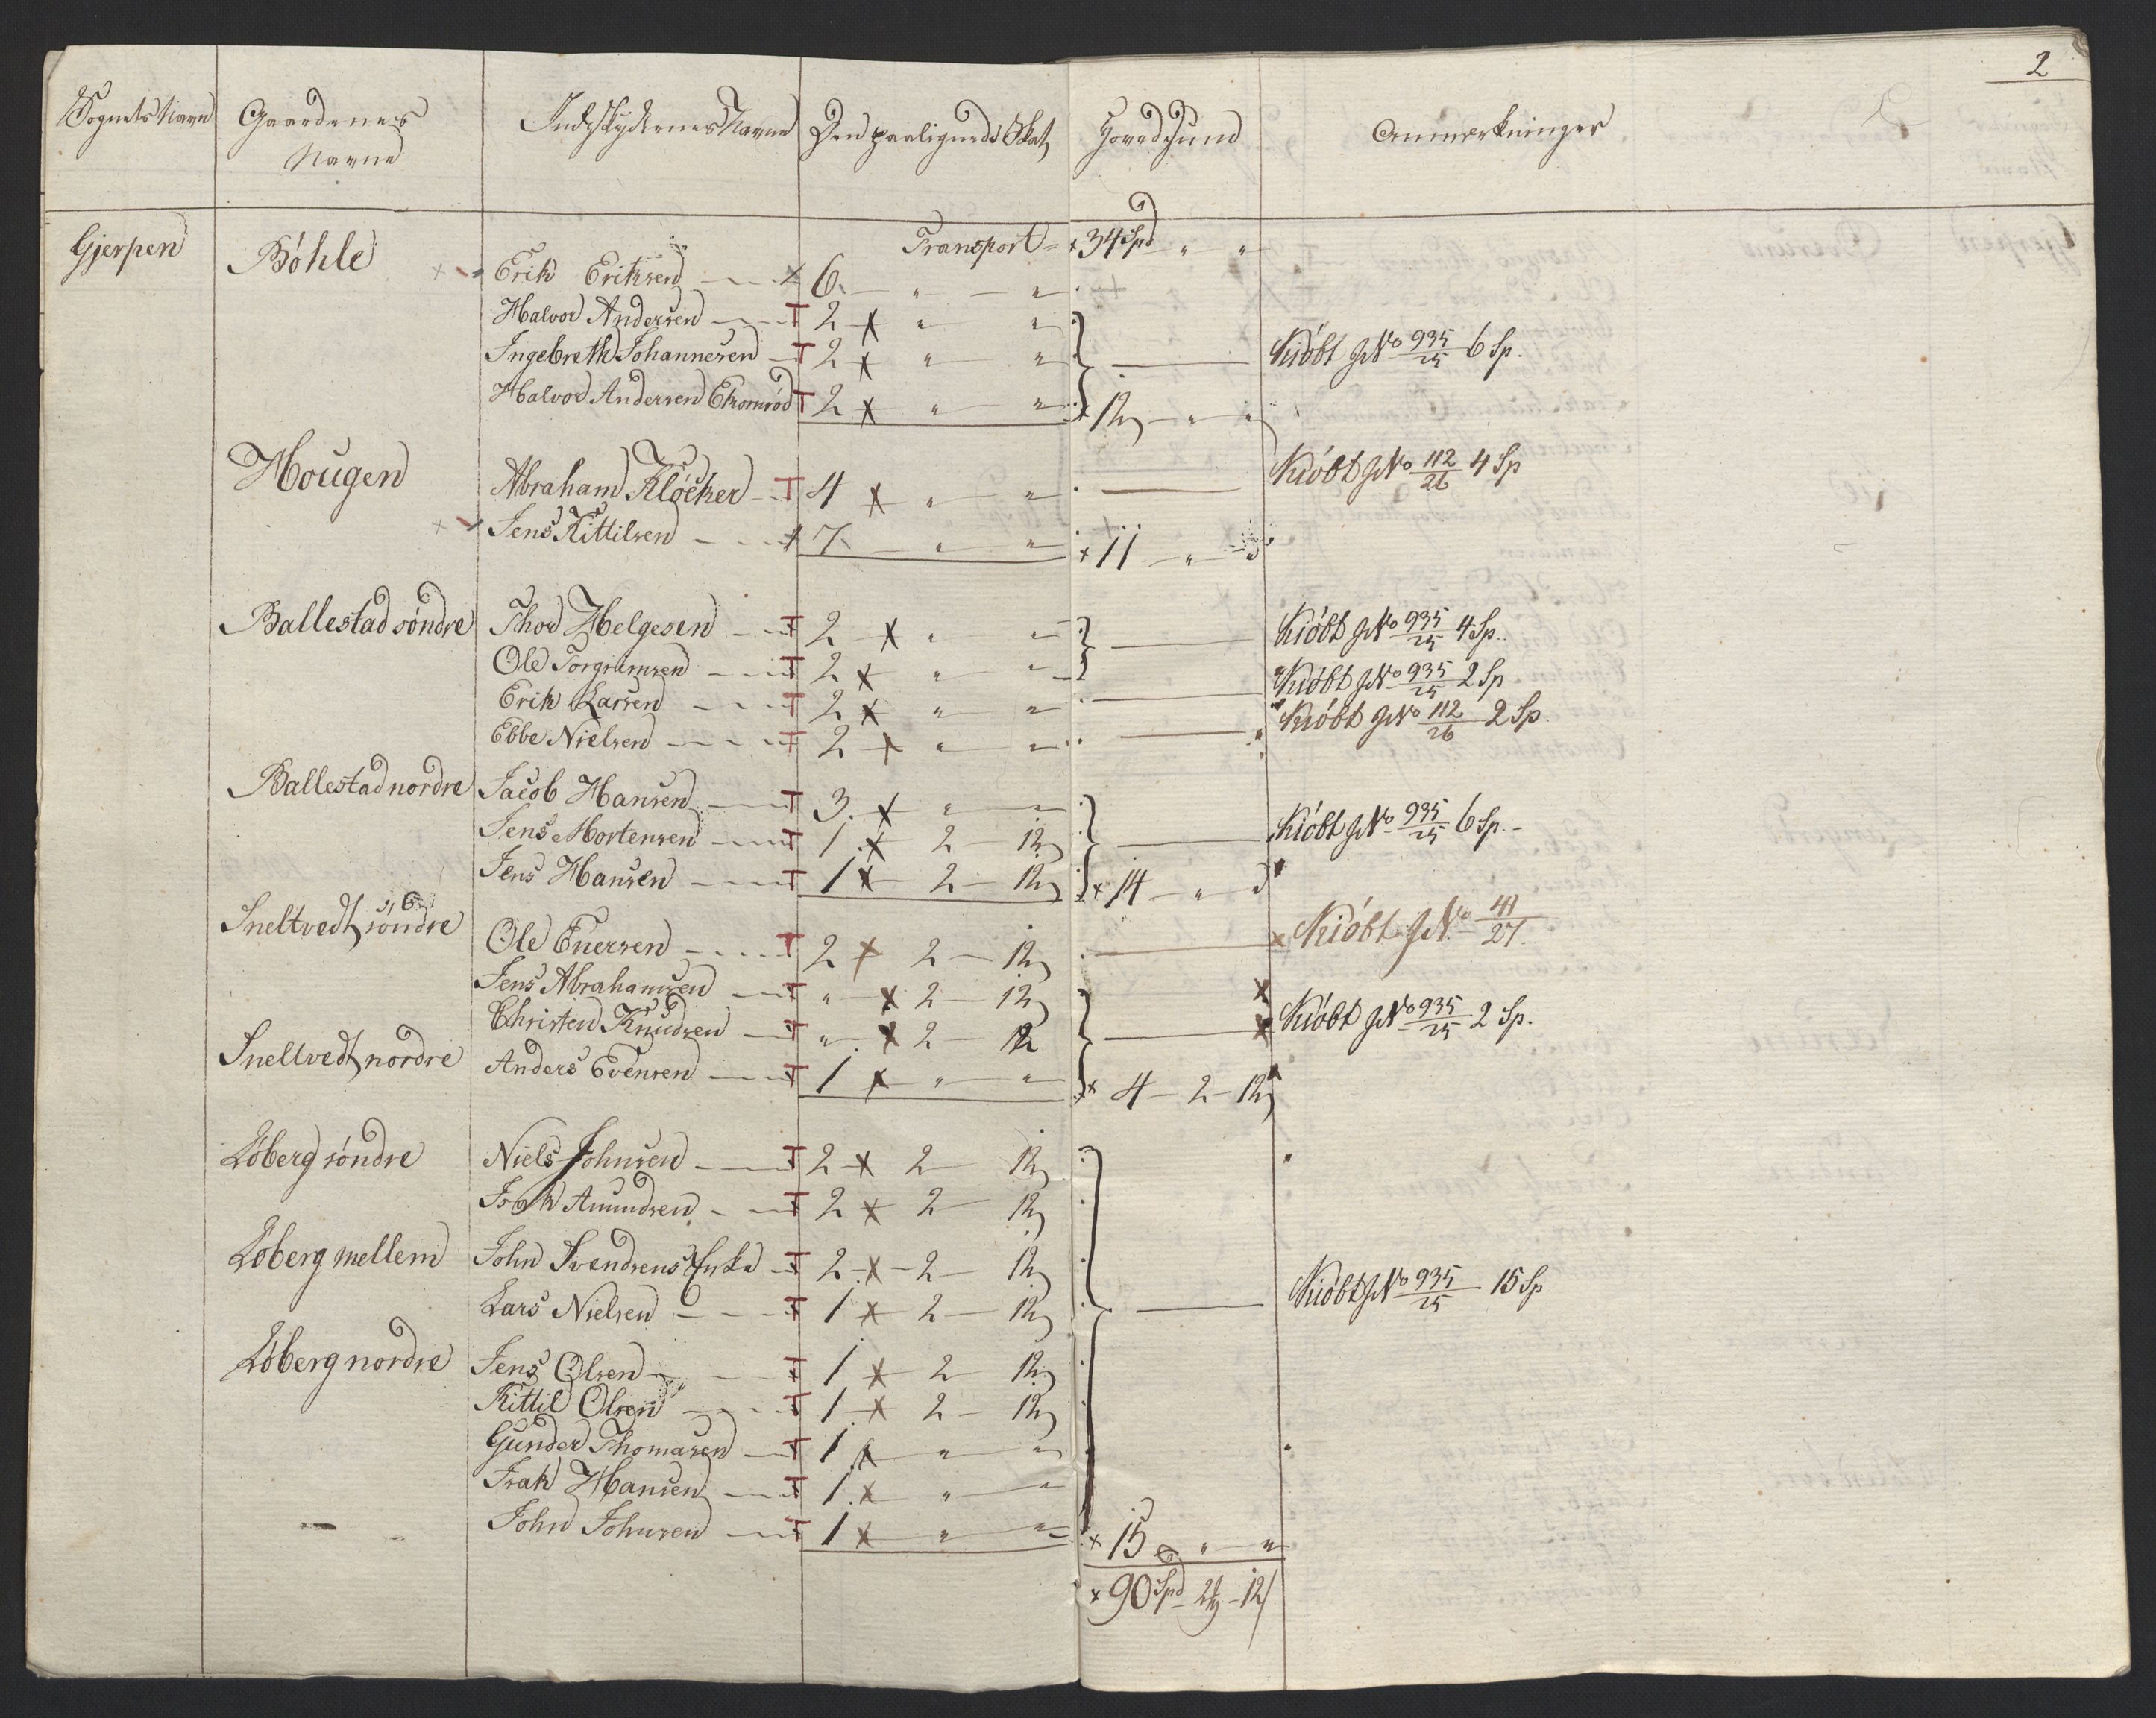 2
Sognets Navn Gaardenes Navne Indskydernes Navne Den paalignede Skat Hovedsum Anmerkninger
Transport 34 Spd " "
Gjerpen Böhle Erik Eriksen 6 " "
Halvor Andersen T 2 x " "
Ingebreth Johannesen T 2 x " " Kiöbt No 935/25 6 Sp.
Halvor Andersen T 2 x " " x 12 " "
Hougen Abraham Klöcker T 4 x " " Kiöbt No 112/26 4 Sp
Jens Kittilsen 7 " " x 11 "
Ballestad söndre Thor Helgesen T 2 x " " Kiöbt No 935/25 4 Sp.
Ole Torgrimsen T 2 x " "
Erik Larsen T 2 x " " Kiöbt No 935/25 2 Sp
Ebbe Nielsen T 2 x " " Kiöbt No 112/26 2 Sp.
Ballestad nordre Jacob Hansen T 3 x " "
Jens Mortensen T 1 x 2 12 Kiöbt No 935/25 6 Sp.
Jens Hansen T 1 x 2 12 x 14 "
Sneltvedt söndre Ole Enersen T 2 x 2 12 x Kiöbt No 41/27.
Jens Abrahamsen T " x 2 12 x
Christen Knudsen T " x 2 12 x Kiöbt No 935/25 2 Sp.
Sneltvedt nordre Anders Evensen T 1 x " " x 4 2 12
Löberg söndre Niels Johnsen T 2 x 2 12
Isak Amundsen T 2 x 2 12
Löberg mellem John Svendsens Enke T 2 x 2 12
Lars Nielsen T 1 x 2 12 Kiöbt No 935/25 15 Sp
Löberg nordre Jens Olsen T 1 x 2 12
Kittil Olsen T 1 x 2 12
Gunder Thomasen T 1 x " "
Isak Hansen T 1 x " "
John Johnsen T 1 x " " x 15 " "
x 90 Spd 2 12